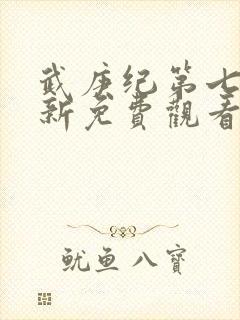 武庚纪第七
新免費觀看
鱿鱼八寶